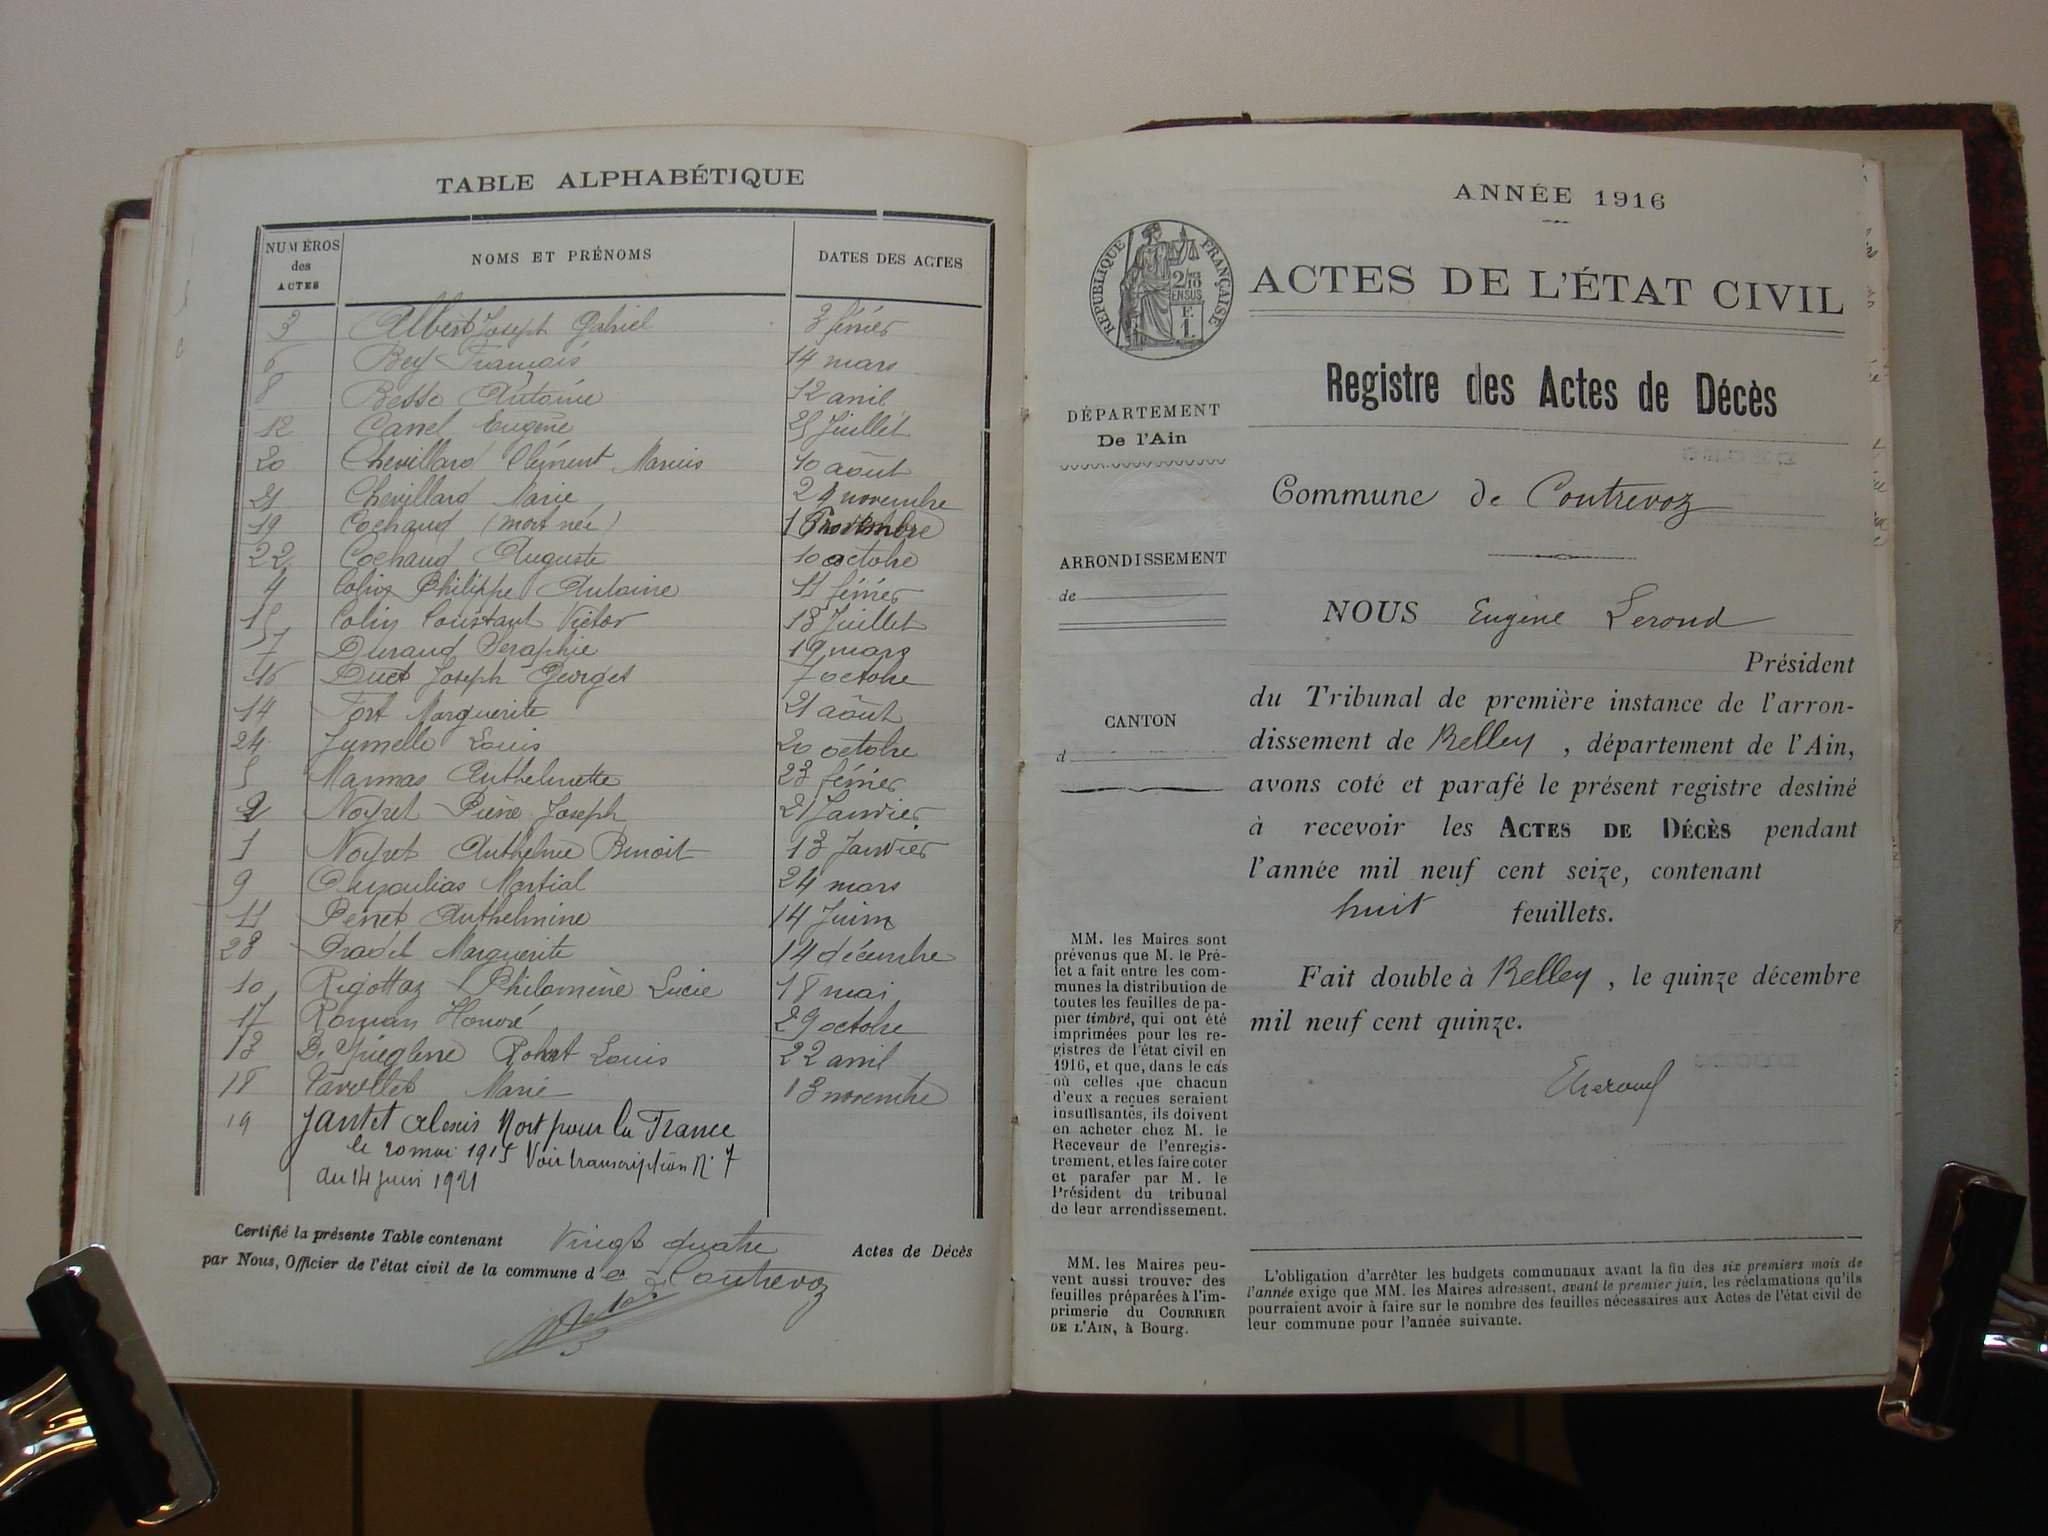 TABLE ALPHABÉTIQUE
NUMÉROS des ACTES
NOMS ET PRÉNOMS
DATES DES ACTES
3 Albert Joseph Gabriel 3 février
6 Bey François 14 mars
8 Besse Antoine 12 avril
12 Canel Eugène 25 Juillet
20 Chevillard Clément Marius 10 août
21 Chevillard Marie 24 novembre
19 Cochaud (mort née) 18 novembre
22 Cochaud Auguste 10 octobre
4 Colin Philippe Antoine 11 février
15 Colin Constant Victor 13 Juillet
7 Durand Séraphie 19 mars
16 Duet Joseph Georges 7 octobre
14 Fort Marguerite 21 août
24 Jumelle Louis 20 octobre
5 Marmas Anthelmette 23 février
2 Noyret Pierre Joseph 21 Janvier
1 Noyret Anthelme Benoit 13 Janvier
9 Martial 24 mars
11 Penet Anthelmine 14 Juin
23 Pradel Marguerite 14 décembre
10 Rigottaz Philomène Lucie 18 mai
17 Roman Honoré 29 octobre
13 De Robert Louis 22 avril
18 Tavollet Marie 13 novembre
19 Jantet Alexis Mort pour la France
le 20 mai 1915 Voir transcription N° 7
du 14 juin 1921
Certifié la présente Table contenant Vingt quatre Actes de Décès
par Nous, Officier de l'état civil de la commune d e Contrevoz
ANNÉE 1916
RÉPUBLIQUE FRANÇAISE
2/10 EN SUS
F. 1.
ACTES DE L'ÉTAT CIVIL
Registre des Actes de Décès
DÉPARTEMENT
De l'Ain
Commune de Contrevoz
ARRONDISSEMENT
de
CANTON
d
NOUS Eugène Lerond
Président
du Tribunal de première instance de l'arron-
dissement de Belley , département de l'Ain,
avons coté et parafé le présent registre destiné
à recevoir les ACTES DE DÉCÈS pendant
l'année mil neuf cent seize, contenant
huit feuillets.
Fait double à Belley , le quinze décembre
mil neuf cent quinze.
MM. les Maires sont
prévenus que M. le Pré-
fet a fait entre les com-
munes la distribution de
toutes les feuilles de pa-
pier timbré, qui ont été
imprimées pour les re-
gistres de l'état civil en
1916, et que, dans le cas
où celles que chacun
d'eux a reçues seraient
insuffisantes, ils doivent
en acheter chez M. le
Receveur de l'enregis-
trement, et les faire coter
et parafer par M. le
Président du tribunal
de leur arrondissement.
MM. les Maires peu-
vent aussi trouver des
feuilles préparées à l'im-
primerie du COURRIER
DE L'AIN, à Bourg.
L'obligation d'arrêter les budgets communaux avant la fin des six premiers mois de
l'année exige que MM. les Maires adressent, avant le premier juin, les réclamations qu'ils
pourraient avoir à faire sur le nombre des feuilles nécessaires aux Actes de l'état civil de
leur commune pour l'année suivante.